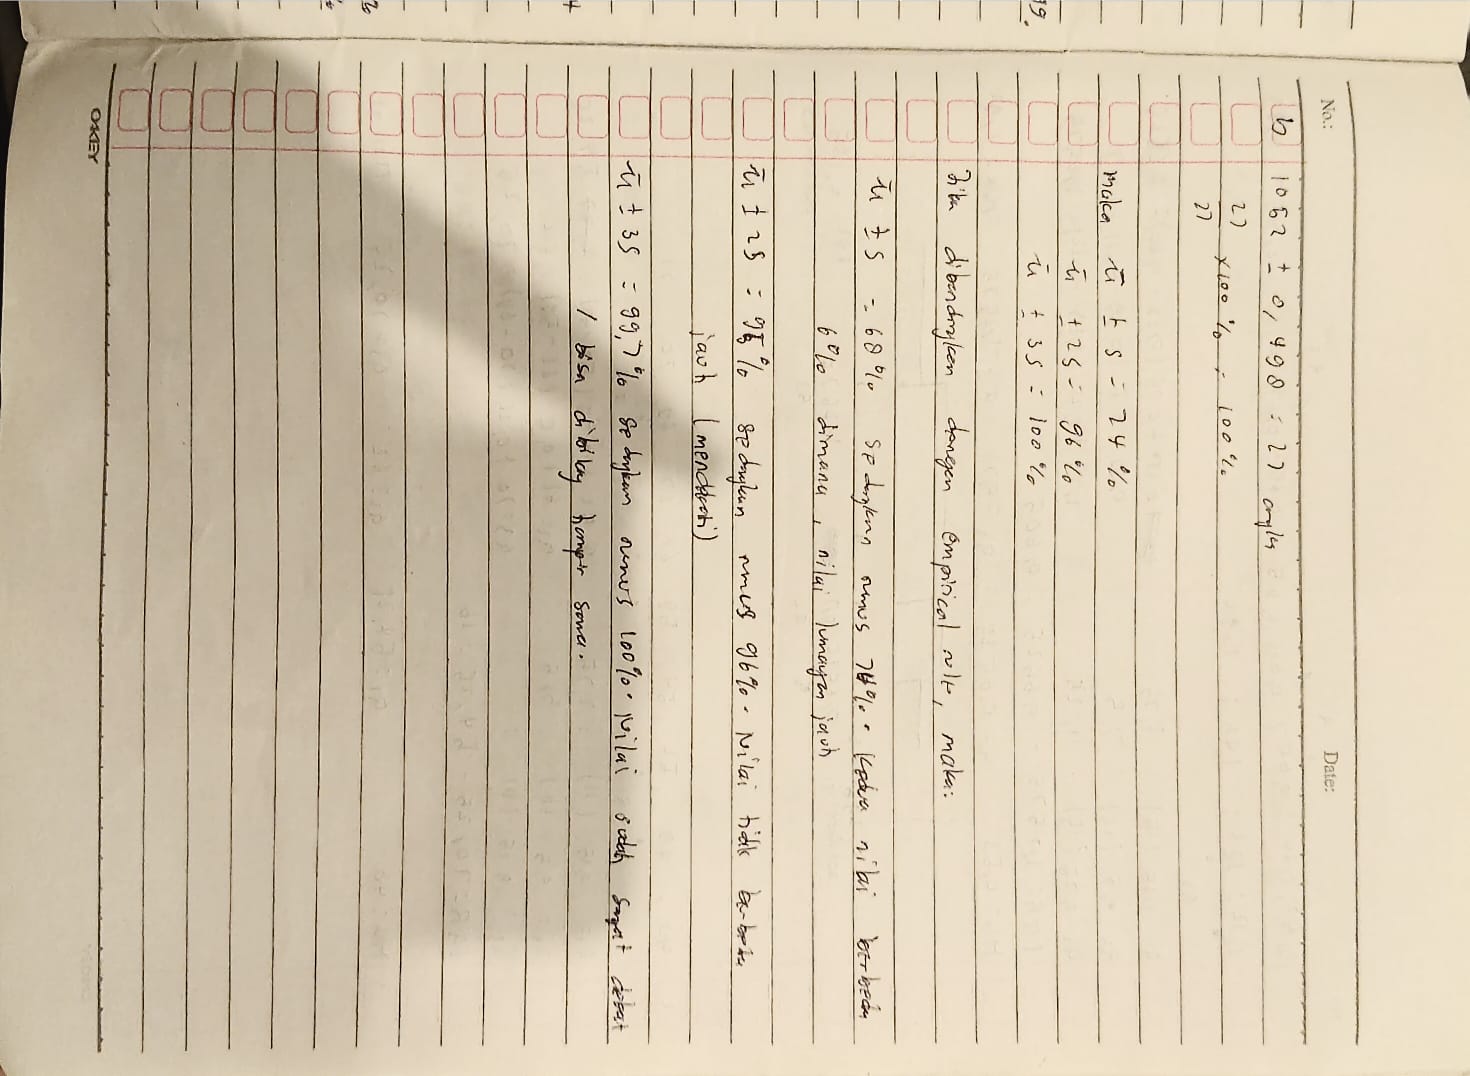 No.: Date:
b 1052 ± 0,498 = 27 angka
27
/27 × 100 % = 100 %
maka ū ± s = 74 %
ū ± 2s = 96 %
ū ± 3s = 100 %
Jika dibandingkan dengan empirical rule, maka:
ū ± s = 68 % sedangkan rumus 74%. Kedua nilai berbeda
6 % dimana , nilai lumayan jauh
ū ± 2s = 95 % sedangkan rumus 96%. Nilai tidak berbeda
jauh (mendekati)
ū ± 3s = 99,7 % sedangkan rumus 100%. Nilai sudah sangat dekat
/ bisa dibilang hampir sama.
19.
OAKEY